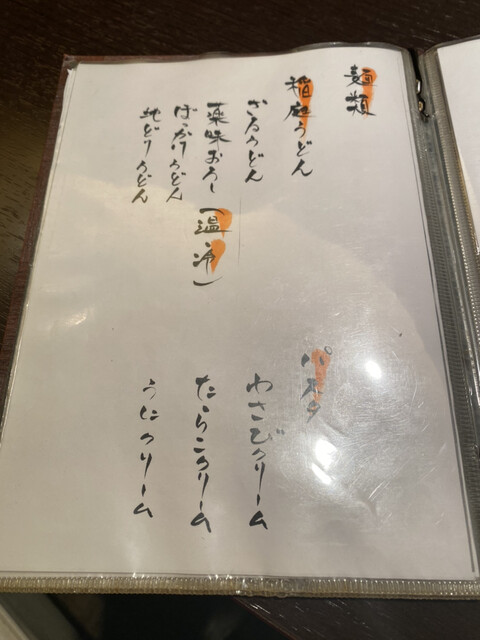 麺類
稲庭うどん
ざるうどん
薬味おろし
(温、冷)
ばっかけうどん
地どりうどん
パスタ
わさびクリーム
たらこクリーム
うにクリーム